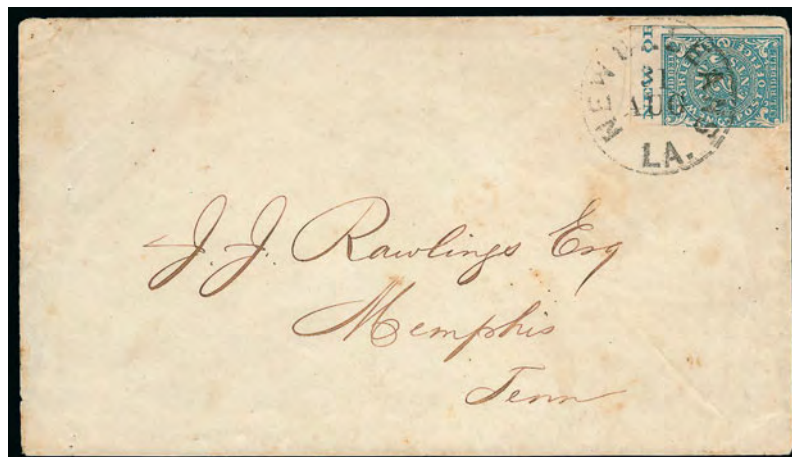 NEW ORLEANS
31
AUG
LA.
J. J. Rawlings Esq
Memphis
Tenn